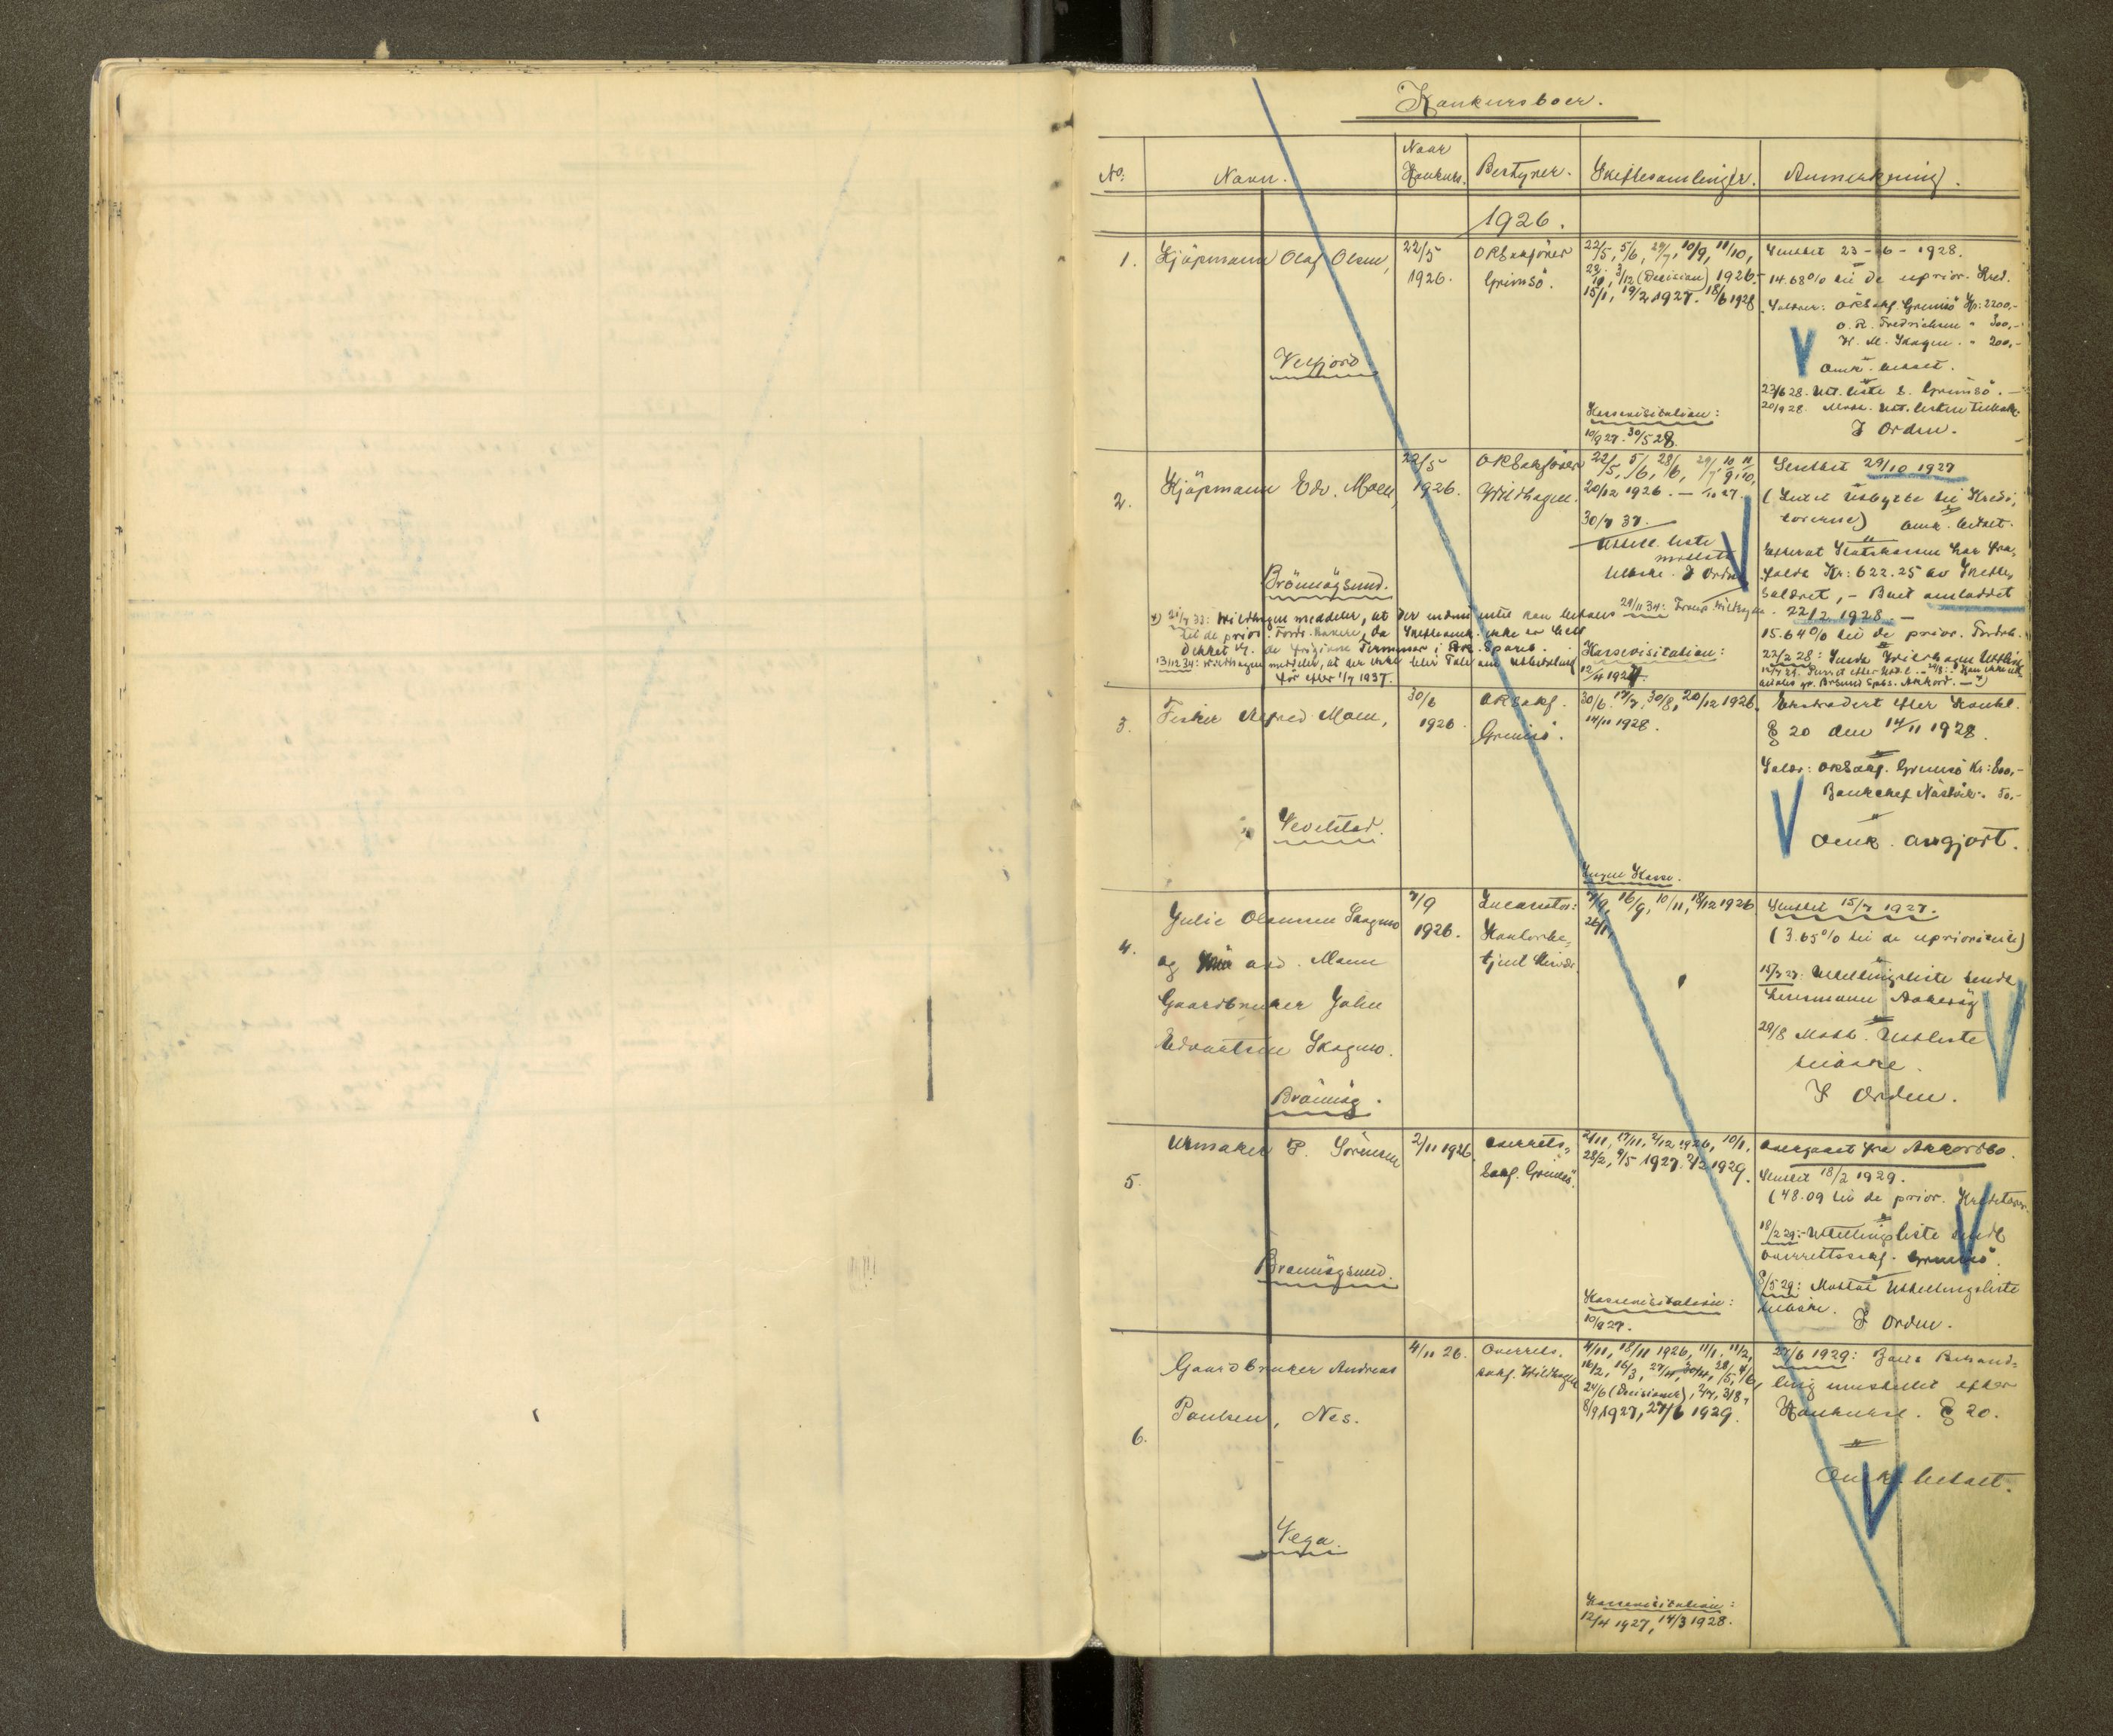 Konkursboer.
No. Navn. Naar Konkurs. Bestyrer. Skiftesamlinger. Anmerkning.
1926.
1. Kjøpmann Olaf Olsen,
Velfjord
22/5
1926.
ORSakfører
Grimsö.
22/5, 5/6, 29/7, 10/9, 11/10,
3/12 (Decision) 1926.
15/1, 19/2 1927. 18/6 1928
Kassevisitation:
10/9 27. 30/5 28.
Sluttet 23-6-1928.
14.68% til de uprior. Kred.
Salær: ORSakf. Grimsö Kr: 2200,-
O. R. Fredriksen " 300,-
H. M. Skogen. " 200,-
Omk. betalt.
23/6 28. Utl. liste s. Grimsö. -
20/9 28. Mott. Utl. listen tilbake.
I Orden.
2. Kjöpmann Edv. Moen,
Brönnöysund.
22/5
1926.
ORSakfører
Wildhagen.
22/5, 5/6, 28/6, 29/7, 10/9, 11/10,
20/12 1926. -
30/7 37.
Utdell. liste
mottatt
tilbake. I Orden
Sluttet 29/10 1927
(Intet Utbytte til Kredi-
torerne) Omk. betalt.
Efterat Statskassen har fra-
faldt Kr: 622.25 av Skifte-
salæret, - Boet omluttet
22/2 1928. -
15.64% til de prior. Fordr.
22/2 28: Sendt Wildhagen Utl.liste
*) 21/7 33: Wildhagen meddeler, at der endnu intet kan betales
til de prior. Fords. havere, da Skifteomk. ikke er helt
dekket av de frigivne Terminer i Br. Spareb.
13/12 34: Wildhagen meddeler, at der ikke blir Tale om Utbetaling
för efter 1/7 1937.
Kassevisitation:
12/4 1927.
3. Fisker Alfred Moen,
Vevelstad.
30/6
1926
ORSakf.
Grimsö.
30/6. 17/7, 30/8, 20/12 1926.
14/11 1928.
Ingen Kasse.
Ekstradert efter Konkl.
§ 20 den 14/11 1928.
Salær: ORSakf. Grimsö Kr: 800,-
Bankchef Nåstvik " 50,-
Omk. avgjort.
4. Julie Olausen Skogmo
og avd. Mann
Gaardbruker John
Edvartsen Skogmo.
Brönnöy.
7/9
1926.
Incassator:
Kontorbe-
tjent
7/9, 16/9, 10/11, 18/12 1926
26/1,
Sluttet 15/7 1927.
(3.65% til de uprioriterte)
15/7 27: Utdelingsliste sendt
Lensmann Aakerøy
29/8 Mott. Utd.liste
tilbake.
I Orden.
5. Urmaker P. Sörensen
Brönnöysund.
2/11 1926
Overrets-
sakf. Grimsö.
2/11, 17/11, 2/12 1926, 10/1,
28/2, 9/5 1927. 2/2 1929.
Kassevisitation:
10/9 27.
Overgaaet fra Akkordbo.
Sluttet 18/2 1929.
(48.09 til de prior. Kreditorer.
18/2 29: - Utdellingsliste sendt
Overrettssakf. Grimsö.
8/5 29: Mottat Utdellingsliste
tilbake. I Orden.
6. Gaardbruker Andreas
Paulsen, Nes.
Vega.
4/11 26.
Overrets.
sakf. Wildhagen
4/11, 18/11 1926, 11/1, 11/2,
16/2, 16/3, 27/4, 30/4, 28/5, 4/6,
24/6 (Decisioner), 2/7, 3/8,
8/9 1927, 27/6 1929.
Kassevisitation:
12/4 1927, 14/3 1928.
27/6 1929: Boets Behand-
ling innstillet efter
Konkursl. § 20.
Omk. betalt.